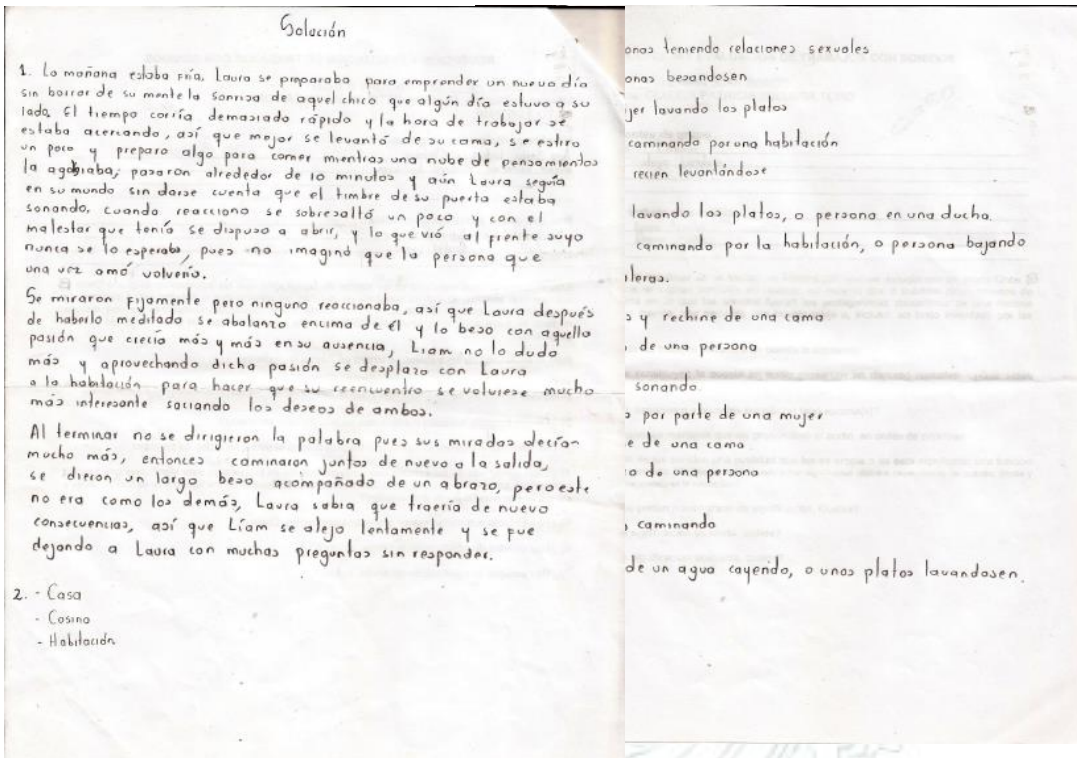 Solución
1. La mañana estaba fría, Laura se preparaba para emprender un nuevo día
sin borrar de su mente la sonrisa de aquel chico que algún día estuvo a su
lado. El tiempo corría demasiado rápido y la hora de trabajar se
estaba acercando, así que mejor se levantó de su cama, se estiro
un poco y preparo algo para comer mientras una nube de pensamientos
la agobiaba, pasaron alrededor de 10 minutos y aún Laura seguía
en su mundo sin darse cuenta que el timbre de su puerta estaba
sonando, cuando reacciono se sobresaltó un poco y con el
malestar que tenía se dispuso a abrir, y lo que vió al frente suyo
nunca se lo esperaba, pues no imaginó que la persona que
una vez amó volvería.
Se miraron fijamente pero ninguno reaccionaba, así que Laura después
de haberlo meditado se abalanzo encima de él y lo beso con aquella
pasión que creció más y más en su ausencia, Liam no lo dudo
más y aprovechando dicha pasión se desplazo con Laura
a la habitación para hacer que su reencuentro se volviese mucho
más interesante saciando los deseos de ambos.
Al terminar no se dirigieron la palabra pues sus miradas decían
mucho más, entonces caminaron juntos de nuevo a la salida,
se dieron un largo beso acompañado de un abrazo, pero este
no era como los demás, Laura sabia que traería de nuevo
consecuencias, así que Líam se alejo lentamente y se fue
dejando a Laura con muchas preguntas sin responder.
2. - Casa
- Cosina
- Habitación
onas teniendo relaciones sexuales
onas besandosen
jer lavando los platos
caminando por una habitación
recien levantándose
lavando los platos, o persona en una ducha.
caminando por la habitación, o persona bajando
leras.
s y rechine de una cama
de una persona
sonando
s por parte de una mujer
e de una cama
o de una persona
caminando
de un agua cayendo, o unos platos lavandosen.